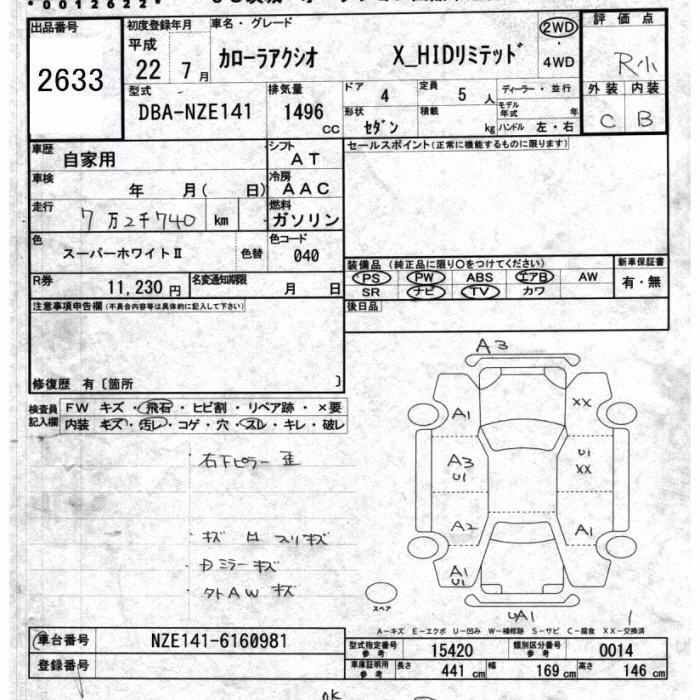 *0012622*
出品番号
2633
初度登録年月
平成
22 7月
車名・グレード
カローラアクシオ X_HIDリミテッド
2WD
・
4WD
評価点
R小
外装 内装
C B
型式
DBA-NZE141
排気量
1496
CC
ドア 4
定員 5人
ディーラー・並行
形状
セダン
積載
kg
モデル年式 年
ハンドル 左・右
車歴
自家用
シフト
AT
車検
年 月( 日)
冷房
AAC
走行
7万2千740 km
燃料
ガソリン
色
スーパーホワイトⅡ
色替
色コード
040
R券
11,230円
名変通知期限
月 日
セールスポイント(正常に機能するものに限ります)
装備品(純正品に限り○をつけてください)
PS PW ABS エアB AW
SR ナビ TV カワ
新車保証書
有・無
後日品
注意事項申告欄(不具合内容等は具体的に記入して下さい)
修復歴 有〔箇所 〕
検査員記入欄
FW キズ・飛石・ヒビ割・リペア跡・×要
内装 キズ・汚レ・コゲ・穴・スレ・キレ・破レ
右下ピラー 歪
スリキズ
ミラー キズ
AW キズ
A3
A1
XX
A3
U1
U1
XX
A2
A1
A1
U1
UA1
スペア
A−キズ E−エクボ U−凹み W−補修跡 S−サビ C−腐食 XX−交換済
車台番号
NZE141-6160981
登録番号
型式指定番号
参考
15420
類別区分番号
参考
0014
車庫証明用
参考
長さ 441cm 幅 169cm 高さ 146cm
OK